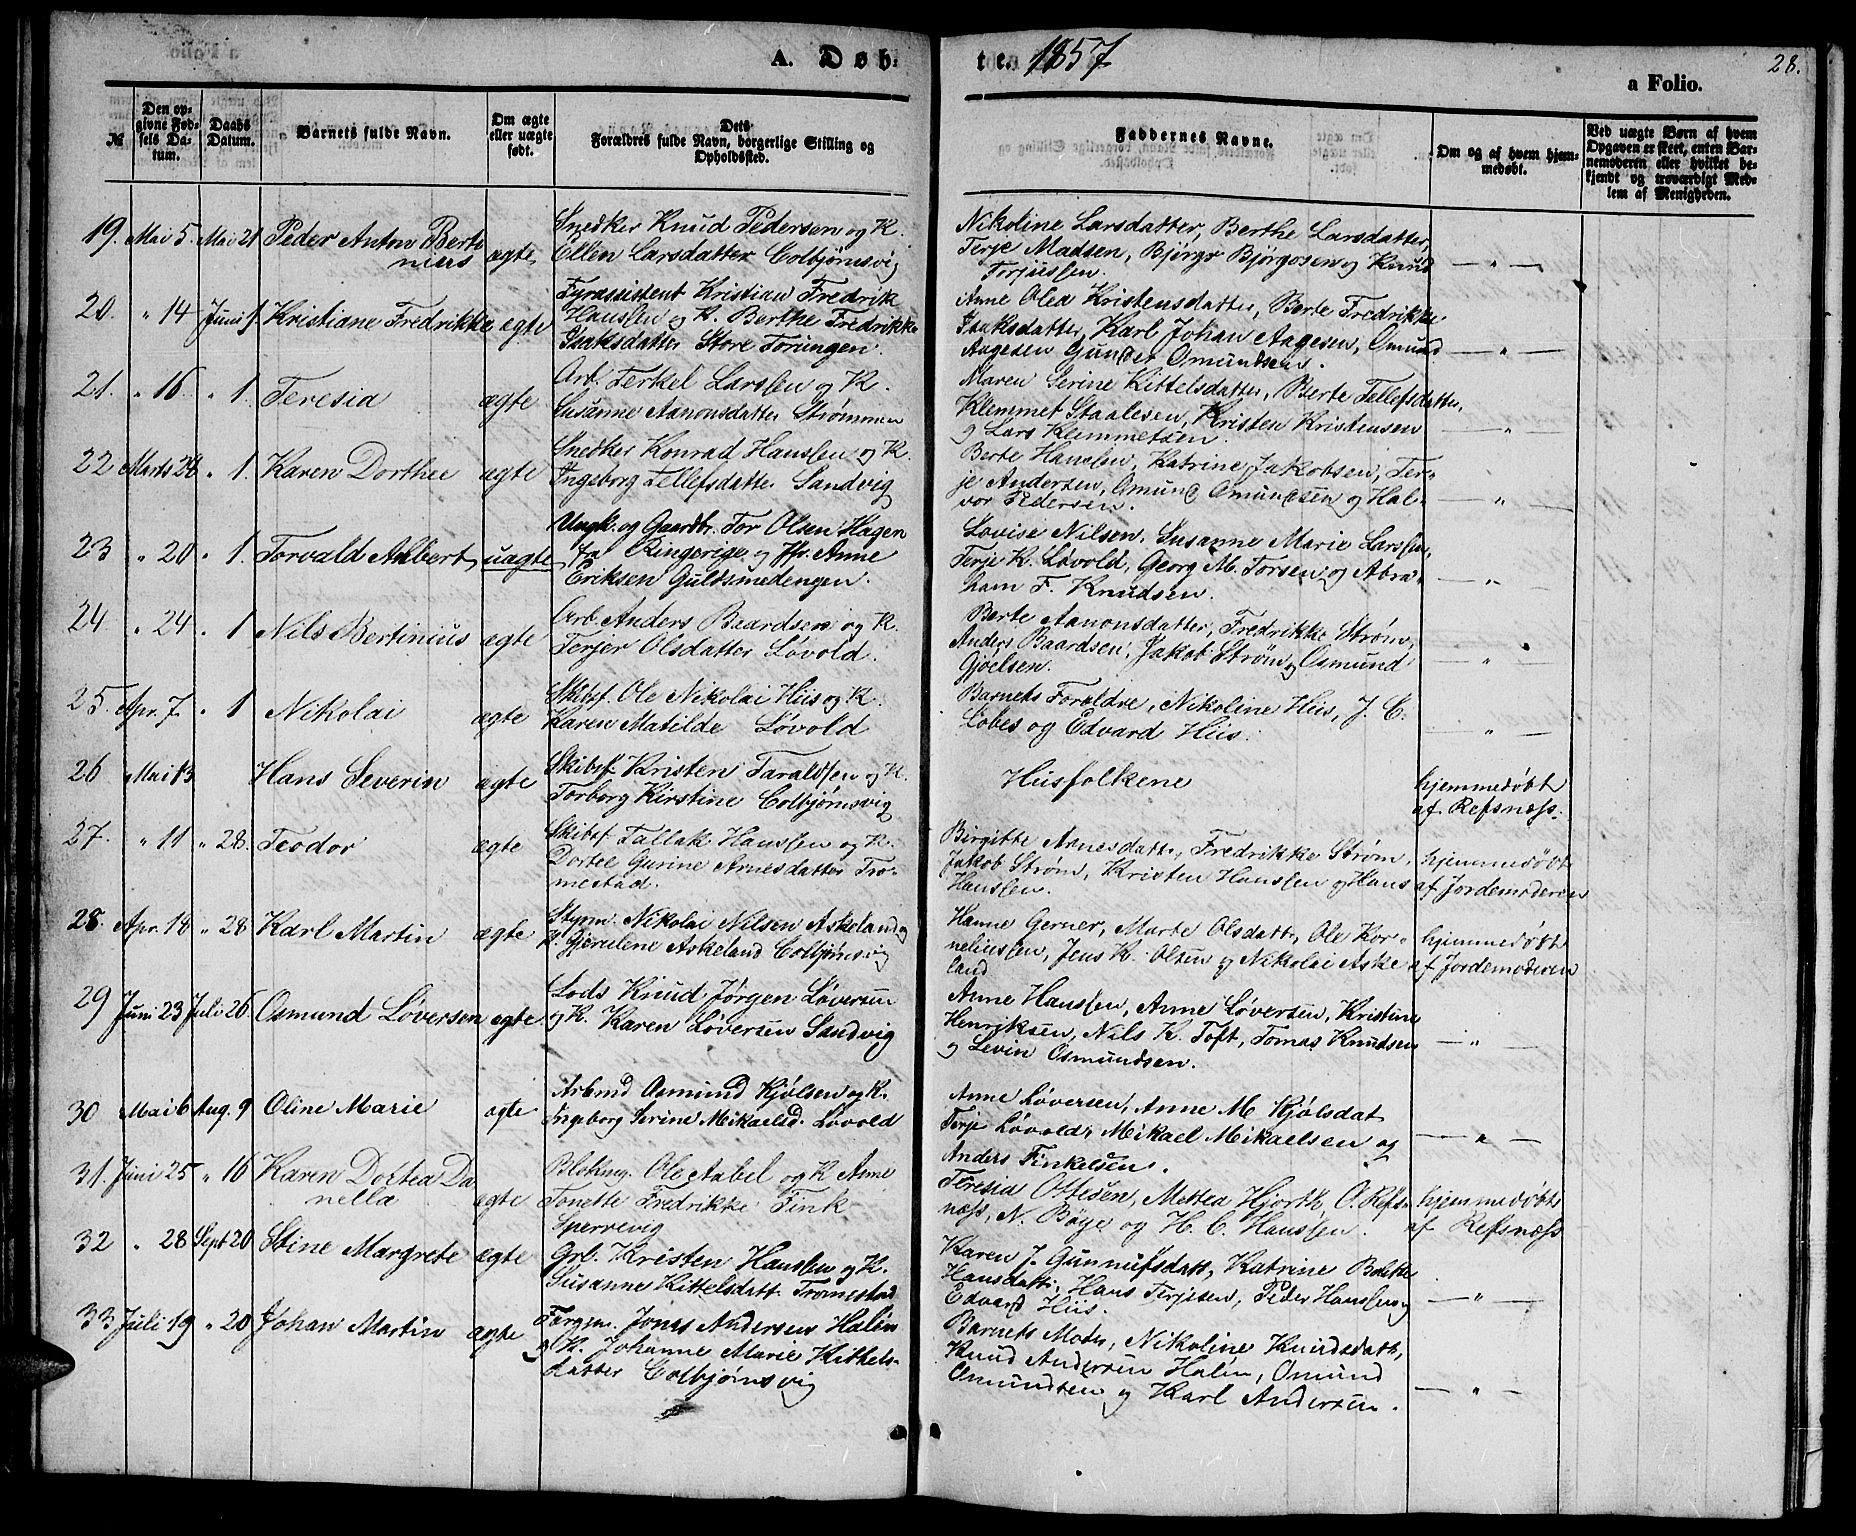 A. Døb- te. 1857
28.
a Folio.
№
Den op-
givne Fød-
sels Da-
tum.
Daabs
Datum.
Barnets fulde Navn.
Om ægte
eller uægte
født.
Dets
Forældres fulde Navn, borgerlige Stilling og
Opholdssted.
Faddernes Navne.
Om og af hvem hjem-
medøbt.
Ved uægte Børn af hvem
Opgaven er skeet, enten Bar-
nemoderen eller hvilket be-
kjendt og troværdigt Med-
lem af Menigheden.
19. Mai 5. Mai 21 Peder Anton Berti
nius ægte
Snedker Knud Pedersen og K.
Ellen Larsdatter Colbjørnsvig
Nikoline Larsdatter, Berthe Larsdatter,
Terje Madsen, Bjørgo Bjørgosen og Knud
Torjussen.
— " —
20. " 14 Juni 1. Kristiane Fredrikke ægte
Fyrassistent Kristian Fredrik
Hanssen og K. Berthe Fredrikke
Isaksdatter Store Torungen.
Anne Olea Kristensdatter, Berte Fredrikke
Isaksdatter, Karl Johan Aagesen, Omund
Aagesen Gunder Omundsen.
— " —
21. " 16 " 1. Teresia ægte
Arb. Terkel Larssen og K.
Susanne Aanonsdatter Strømmen
Maren Serine Kittelsdatter, Berte Tellefsdatter,
Klemmet Staalesen, Kristen Kristensen
og Lars Klemmetsen.
— " —
22 Marts 28 " 1. Karen Dorthee ægte
Snedker Konrad Hanssen og K.
Ingeborg Tellefsdatter Sandvig
Berte Hanssen, Katrine Jakobsen, Ter-
je Andersen, Omund Omundsen og Hal-
vor Pedersen.
— " —
23 " 20 " 1. Torvald Ahlbert uægte
Ungk. og Gaardbr. Tor Olsen Hagen
fra Ringerige og Jfr. Anne
Eriksen Guldsmedengen.
Lovise Nilsen, Susanne Marie Larssen,
Terje K. Løvold, Georg M. Torsen og Abra-
ham F. Knudsen.
— " —
24 " 24 " 1 Nils Bertinius ægte
Arb. Anders Baardsen og K.
Terjer Olsdatter Løvold.
Berte Aanonsdatter, Fredrikke Strøm,
Anders Baardsen, Jakob Strøm og Osmund
Gjoelsen.
— " —
25. Apr. 7. " 1 Nikolai ægte
Skibsf. Ole Nikolai Hiis og K.
Karen Matilde Løvold
Barnets Forældre, Nikoline Hiis, J. C.
Løbes og Edvard Hiis.
— " —
26 Mai 13 Hans Severin ægte
Skibsf. Kristen Taraldsen og K.
Torborg Kirstine Colbjørnsvig
Husfolkene
hjemmedøbt
af Refsnæss.
27. " 11 " 28. Teodor ægte
Skibsf. Tallak Hanssen og K.
Dortee Gurine Arnesdatter Tro-
mestad.
Birgitte Arnesdatt., Fredrikke Strøm,
Jakob Strøm, Kristen Hanssen og Hans
Hanssen.
hjemmedøbt
af Jordemoderen
28. Apr. 18 " 28 Karl Martin ægte
Styrm. Nikolai Nilsen Askeland og
K. Gjerulene Askeland Colbjørnsvig
Hanne Gerner, Marte Olsdatt., Ole Kor-
neliussen, Jens K. Olsen og Nikolai Aske
land
hjemmedøbt
af Jordemoderen
29 Juni 23 Juli 26 Osmund Løversen ægte
Lods Knud Jørgen Løversen
og K. Karen Løversen Sandvig
Anne Hanssen, Anne Løversen, Kristine
Henriksen, Nils K. Toft, Tomas Knudsen
og Levin Osmundsen.
— " —
30 Mai 6 Aug. 9 Oline Marie ægte
Arbmd Osmund Kjølsen og K.
Ingeborg Serine Mikaelsd. Løvold
Anne Løversen, Anne M. Kjølsdat
Terje Løvold, Mikael Mikaelsen og
Anders Finkelsen.
— " —
31. Juni 25 " 16 Karen Dortea Da
nella ægte
Blokmg. Ole Aabel og K Anne
Tonette Fredrikke Fink
Sperrevig
Teresia Ottesen, Mettea Hjorth, O. Refs-
næss, N. Bøye og H. C. Hanssen.
hjemmedøbt
af Refsnæss
32 " 28 Sept 20 Stine Margrete ægte
Grb. Kristen Hanssen og K.
Susanne Kittelsdatt. Tromestad
Karen J. Gunnufsdatt, Katrine Bolette
Hansdatt., Hans Terjesen, Peder Hanssen og
Edvard Hiis.
— " —
33 Juli 19 " 20 Johan Martin ægte
Færgm. Jonas Andersen Halén
og K. Johanne Marie Kittels-
datter Colbjørnsvig
Barnets Moder, Nikoline Knudsdatt,
Knud Andersen Halén, Omund
Omundsen og Karl Andersen.
— " —